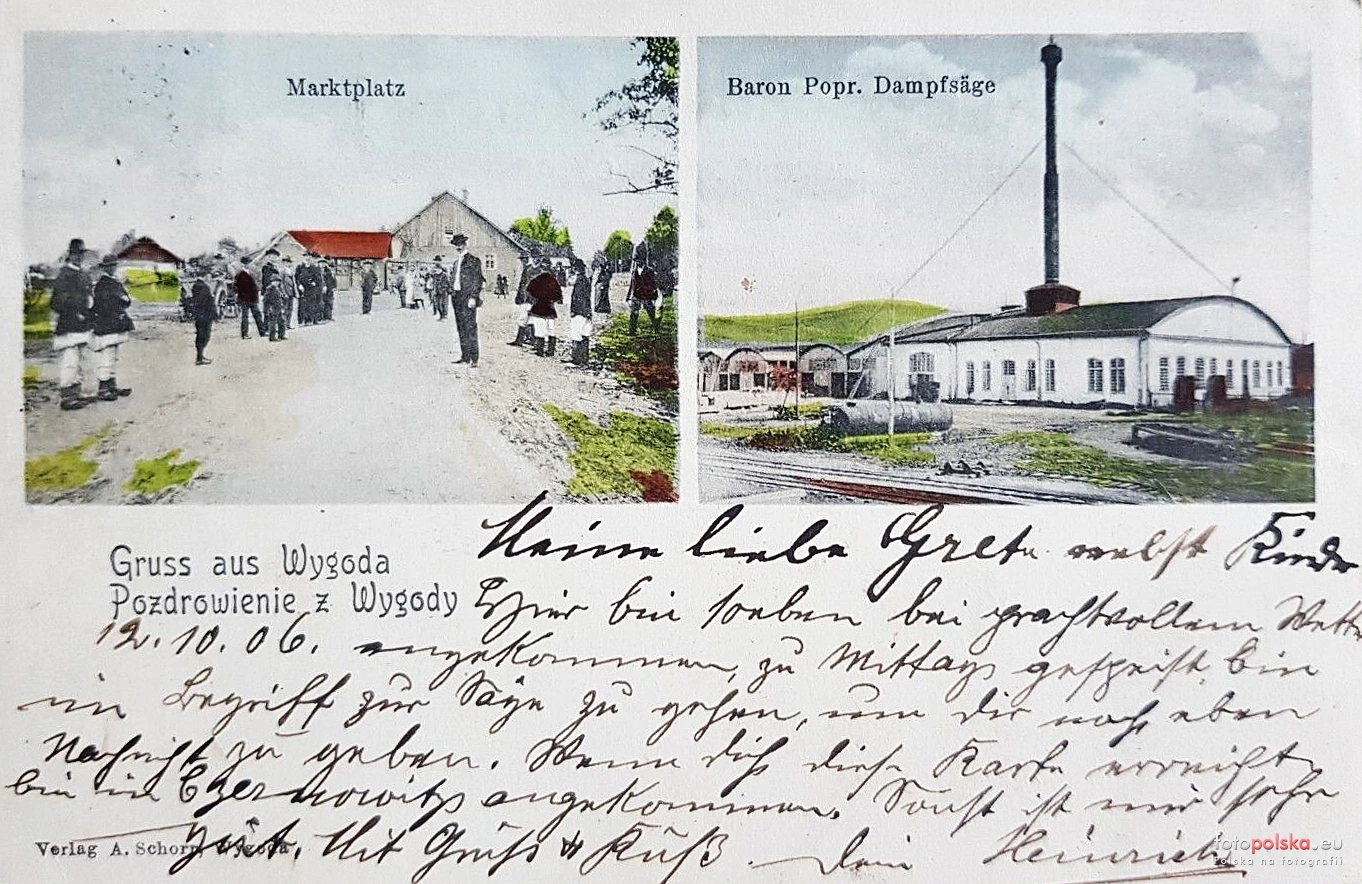 Marktplatz
Baron Popr. Dampfsäge
Gruss aus Wygoda
Pozdrowienie z Wygody
12.10.06.
Meine liebe Grete nebst Kinder
Hier bin soeben bei prachtvollem Wette
angekommen, zu Mittag gespeist, bin
im Begriff zur Säge zu gehen, um dir noch eben
Nachricht zu geben. Wenn dich diese Karte erreicht
bin in Czernowitz angekommen. Sonst ist mir sehr
gut. Mit Gruß & Kuß. Dein Heinrich
Verlag A. Schorr, Wygoda
fotopolska.eu
Polska na fotografii